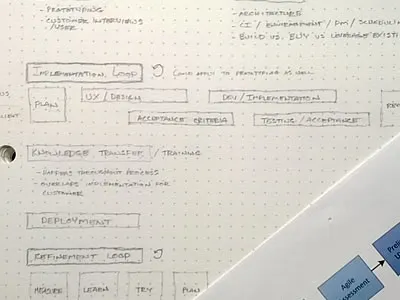 - PROTOTYPING
- CUSTOMER INTERVIEWS
/USER
- ARCHITECTURE
- CI / ENVIRONMENT /
- BUILD VS. BUY VS LEVERAGE
IMPLEMENTATION LOOP
COULD APPLY TO PROTOTYPING AS WELL
PLAN
UX / DESIGN
DEV / IMPLEMENTATION
ACCEPTANCE CRITERIA
TESTING / ACCEPTANCE
KNOWLEDGE TRANSFER / TRAINING
- HAPPENS THROUGHOUT PROCESS
- OVERLAPS IMPLEMENTATION FOR
CUSTOMER
DEPLOYMENT
REFINEMENT LOOP
MEASURE
LEARN
TRY
PLAN
Agile